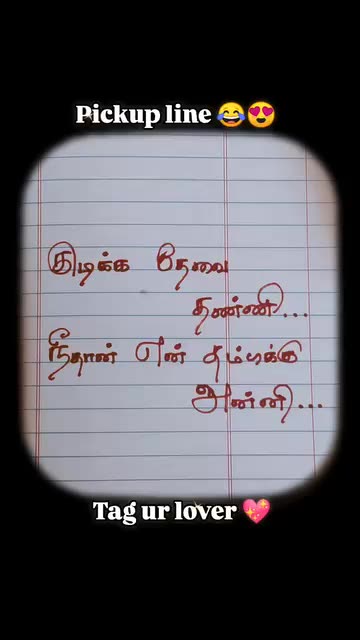 Pickup line 😂😍
குடிக்க தேவை
தண்ணி...
நீதான் என் தம்பிக்கு
அண்ணி...
Tag ur lover 💖